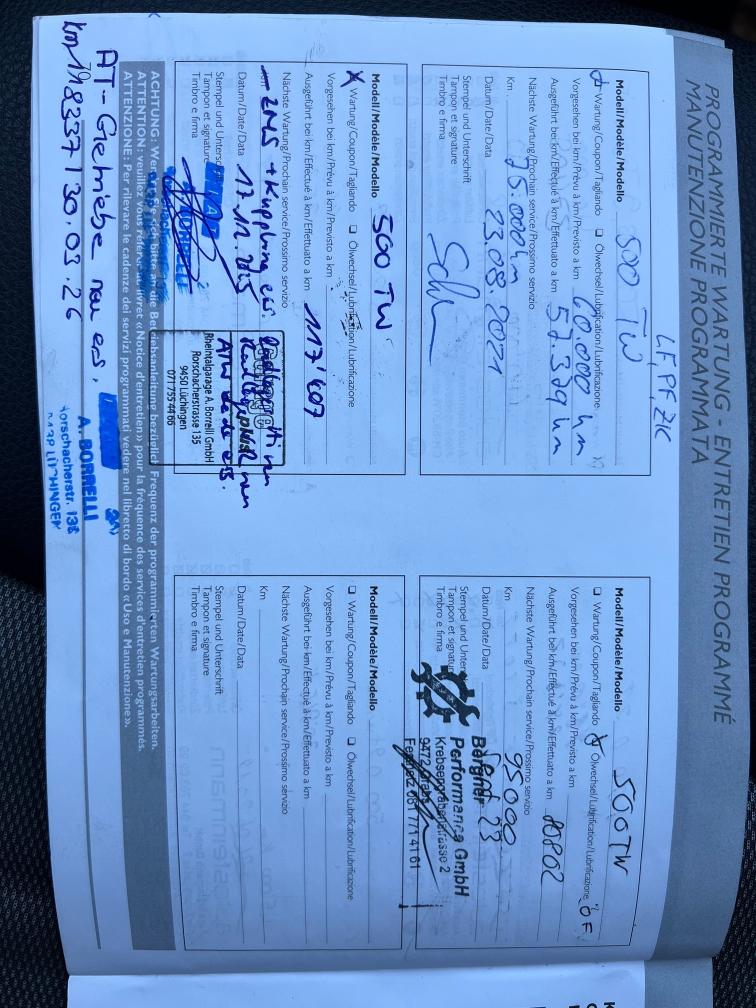 PROGRAMMIERTE WARTUNG - ENTRETIEN PROGRAMMÉ
MANUTENZIONE PROGRAMMATA
LF, PF, ZK
Modell/Modèle/Modello 500 TW
Wartung/Coupon/Tagliando ❑ Ölwechsel/Lubrification/Lubrificazione
Vorgesehen bei km/Prévu à km/Previsto a km 60.000 km
Ausgeführt bei km/Effectué à km/Effettuato a km 57.329 km
Nächste Wartung/Prochain service/Prossimo servizio
Km 75.000 km
Datum/Date/Data 23.08.2021
Stempel und Unterschrift
Tampon et signature
Timbro e firma
Modell/Modèle/Modello 500TW
❑ Wartung/Coupon/Tagliando Ölwechsel/Lubrification/Lubrificazione öF
Vorgesehen bei km/Prévu à km/Previsto a km
Ausgeführt bei km/Effectué à km/Effettuato a km 80802
Nächste Wartung/Prochain service/Prossimo servizio
Km 95000
Datum/Date/Data Sept 23
Stempel und Unterschrift
Tampon et signature
Timbro e firma
Performance GmbH
Krebsengrabenstrasse 2
9472 Grabs
081 771 41 61
Modell/Modèle/Modello 500 TW
X Wartung/Coupon/Tagliando ❑ Ölwechsel/Lubrification/Lubrificazione
Vorgesehen bei km/Prévu à km/Previsto a km
Ausgeführt bei km/Effectué à km/Effettuato a km 117'607
Nächste Wartung/Prochain service/Prossimo servizio
- ZMS + Kupplung ers.
Datum/Date/Data 17.12.2025
Stempel und Unterschrift
Tampon et signature
Timbro e firma
Rheintalgarage A. Borrelli GmbH
Rorschacherstrasse 135
9450 Lüchingen
071 755 44 66
Modell/Modèle/Modello
❑ Wartung/Coupon/Tagliando ❑ Ölwechsel/Lubrification/Lubrificazione
Vorgesehen bei km/Prévu à km/Previsto a km
Ausgeführt bei km/Effectué à km/Effettuato a km
Nächste Wartung/Prochain service/Prossimo servizio
Km
Datum/Date/Data
Stempel und Unterschrift
Tampon et signature
Timbro e firma
ACHTUNG: bitte an die Betriebsanleitung bezüglich Frequenz der programmierten Wartungsarbeiten.
ATTENTION: veuillez vous référer au livret «Notice d'entretien» pour la fréquence des services d'entretien programmés.
ATTENZIONE: Per rilevare le cadenze dei servizi programmati vedere nel libretto di bordo «Uso e Manutenzione».
AT-Getriebe neu ers.
km 118337 / 30.03.26
A. BORRELLI
Rorschacherstr. 135